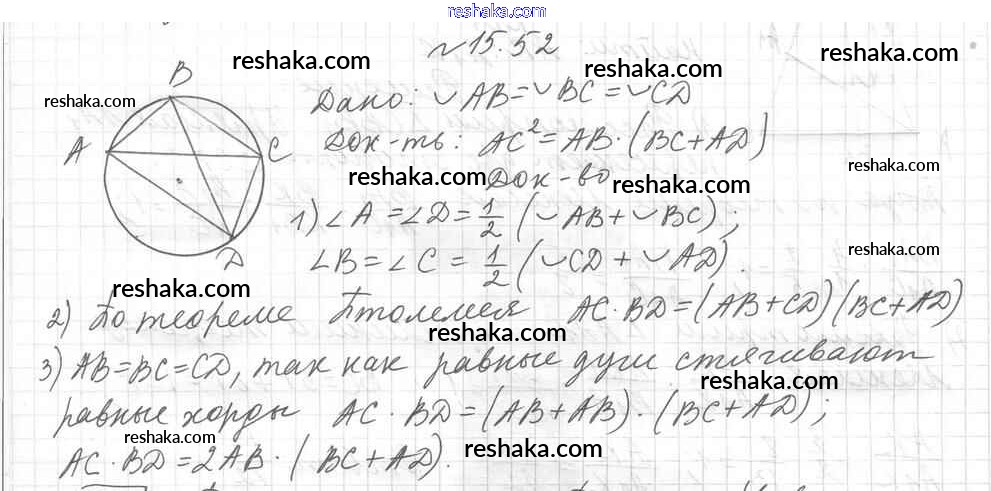 reshaka.com
N15.52
reshaka.com
reshaka.com
reshaka.com
reshaka.com
B
A
C
D
Дано: ◡AB=◡BC=◡CD
Док-ть: AC²=AB·(BC+AD)
reshaka.com
reshaka.com
Док-во
reshaka.com
1) ∠A=∠D=1/2 (◡AB+◡BC);
∠B=∠C=1/2 (◡CD+◡AD).
reshaka.com
reshaka.com
2) По теореме Птолемея AC·BD=(AB+CD)(BC+AD)
reshaka.com
3) AB=BC=CD, так как равные дуги стягивают
reshaka.com
равные хорды AC·BD=(AB+AB)·(BC+AD);
reshaka.com
reshaka.com
AC·BD=2AB·(BC+AD).